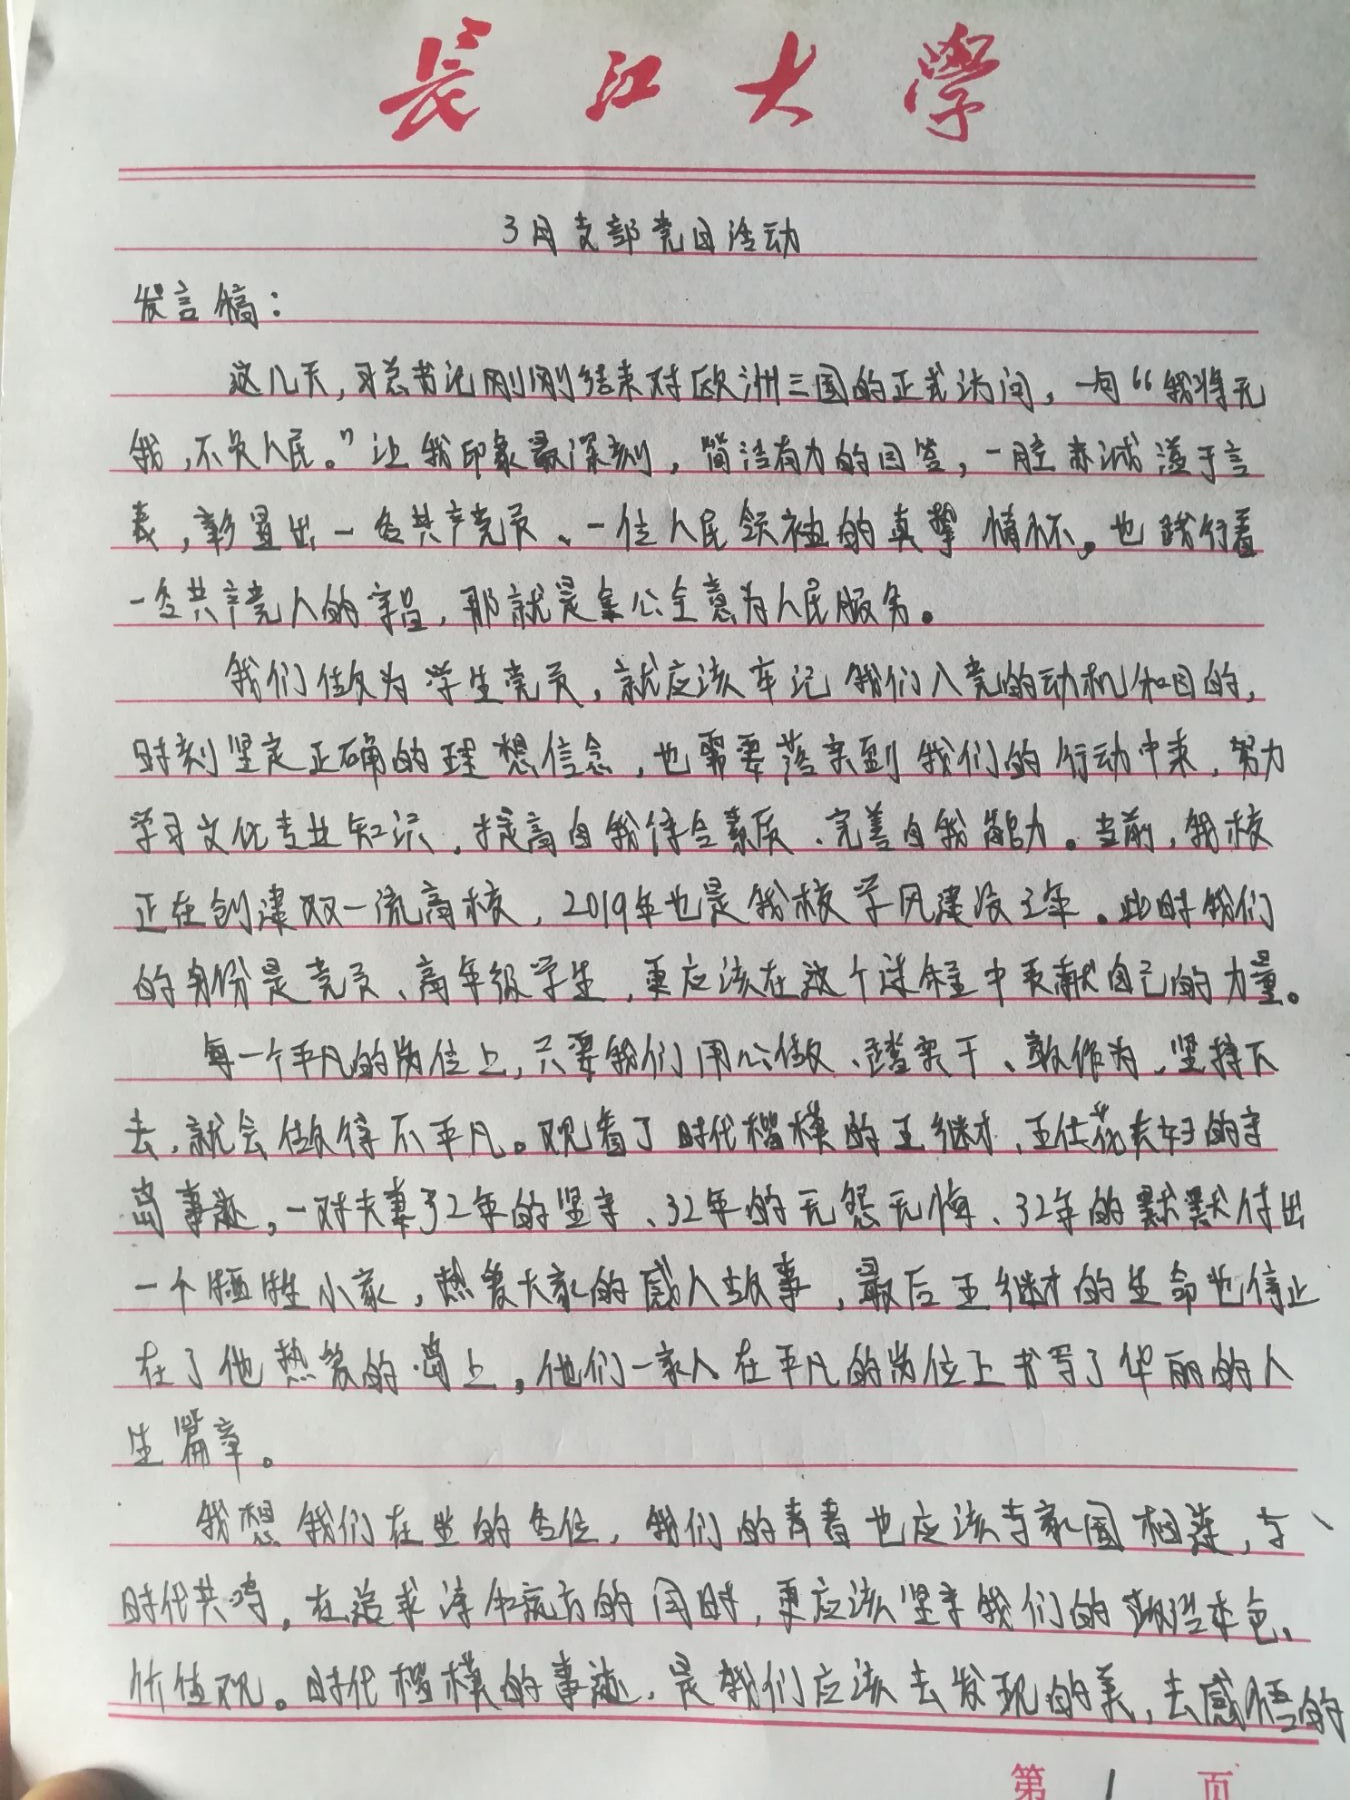 长江大学
3月支部党日活动
发言稿：
这几天，习总书记刚刚结束对欧洲三国的正式访问，一句“我将无
我，不负人民。”让我印象最深刻，简洁有力的回答，一腔赤诚溢于言
表，彰显出一名共产党员、一位人民领袖的真挚情怀。也践行着
一名共产党人的誓言，那就是全心全意为人民服务。
我们做为学生党员，就应该牢记我们入党的动机和目的，
时刻坚定正确的理想信念，也需要落实到我们的行动中来，努力
学习文化专业知识，提高自我综合素质、完善自我能力。当前，我校
正在创建双一流高校，2019年也是我校学风建设之年。此时我们
的身份是党员、高年级学生，更应该在这个过程中贡献自己的力量。
每一个平凡的岗位上，只要我们用心做、踏实干、敢作为，坚持下
去，就会做得不平凡。观看了时代楷模的王继才、王仕花夫妇的守
岛事迹，一对夫妻32年的坚守、32年的无怨无悔、32年的默默付出
一个牺牲小家，热爱大家的感人故事，最后王继才的生命也停止
在了他热爱的岛上，他们一家人在平凡的岗位上书写了华丽的人
生篇章。
我想我们在坐的各位，我们的青春也应该与家国相连，与
时代共鸣，在追求诗和远方的同时，更应该坚守我们的政治本色、
价值观。时代楷模的事迹，是我们应该去发现的美，去感悟的
第1页